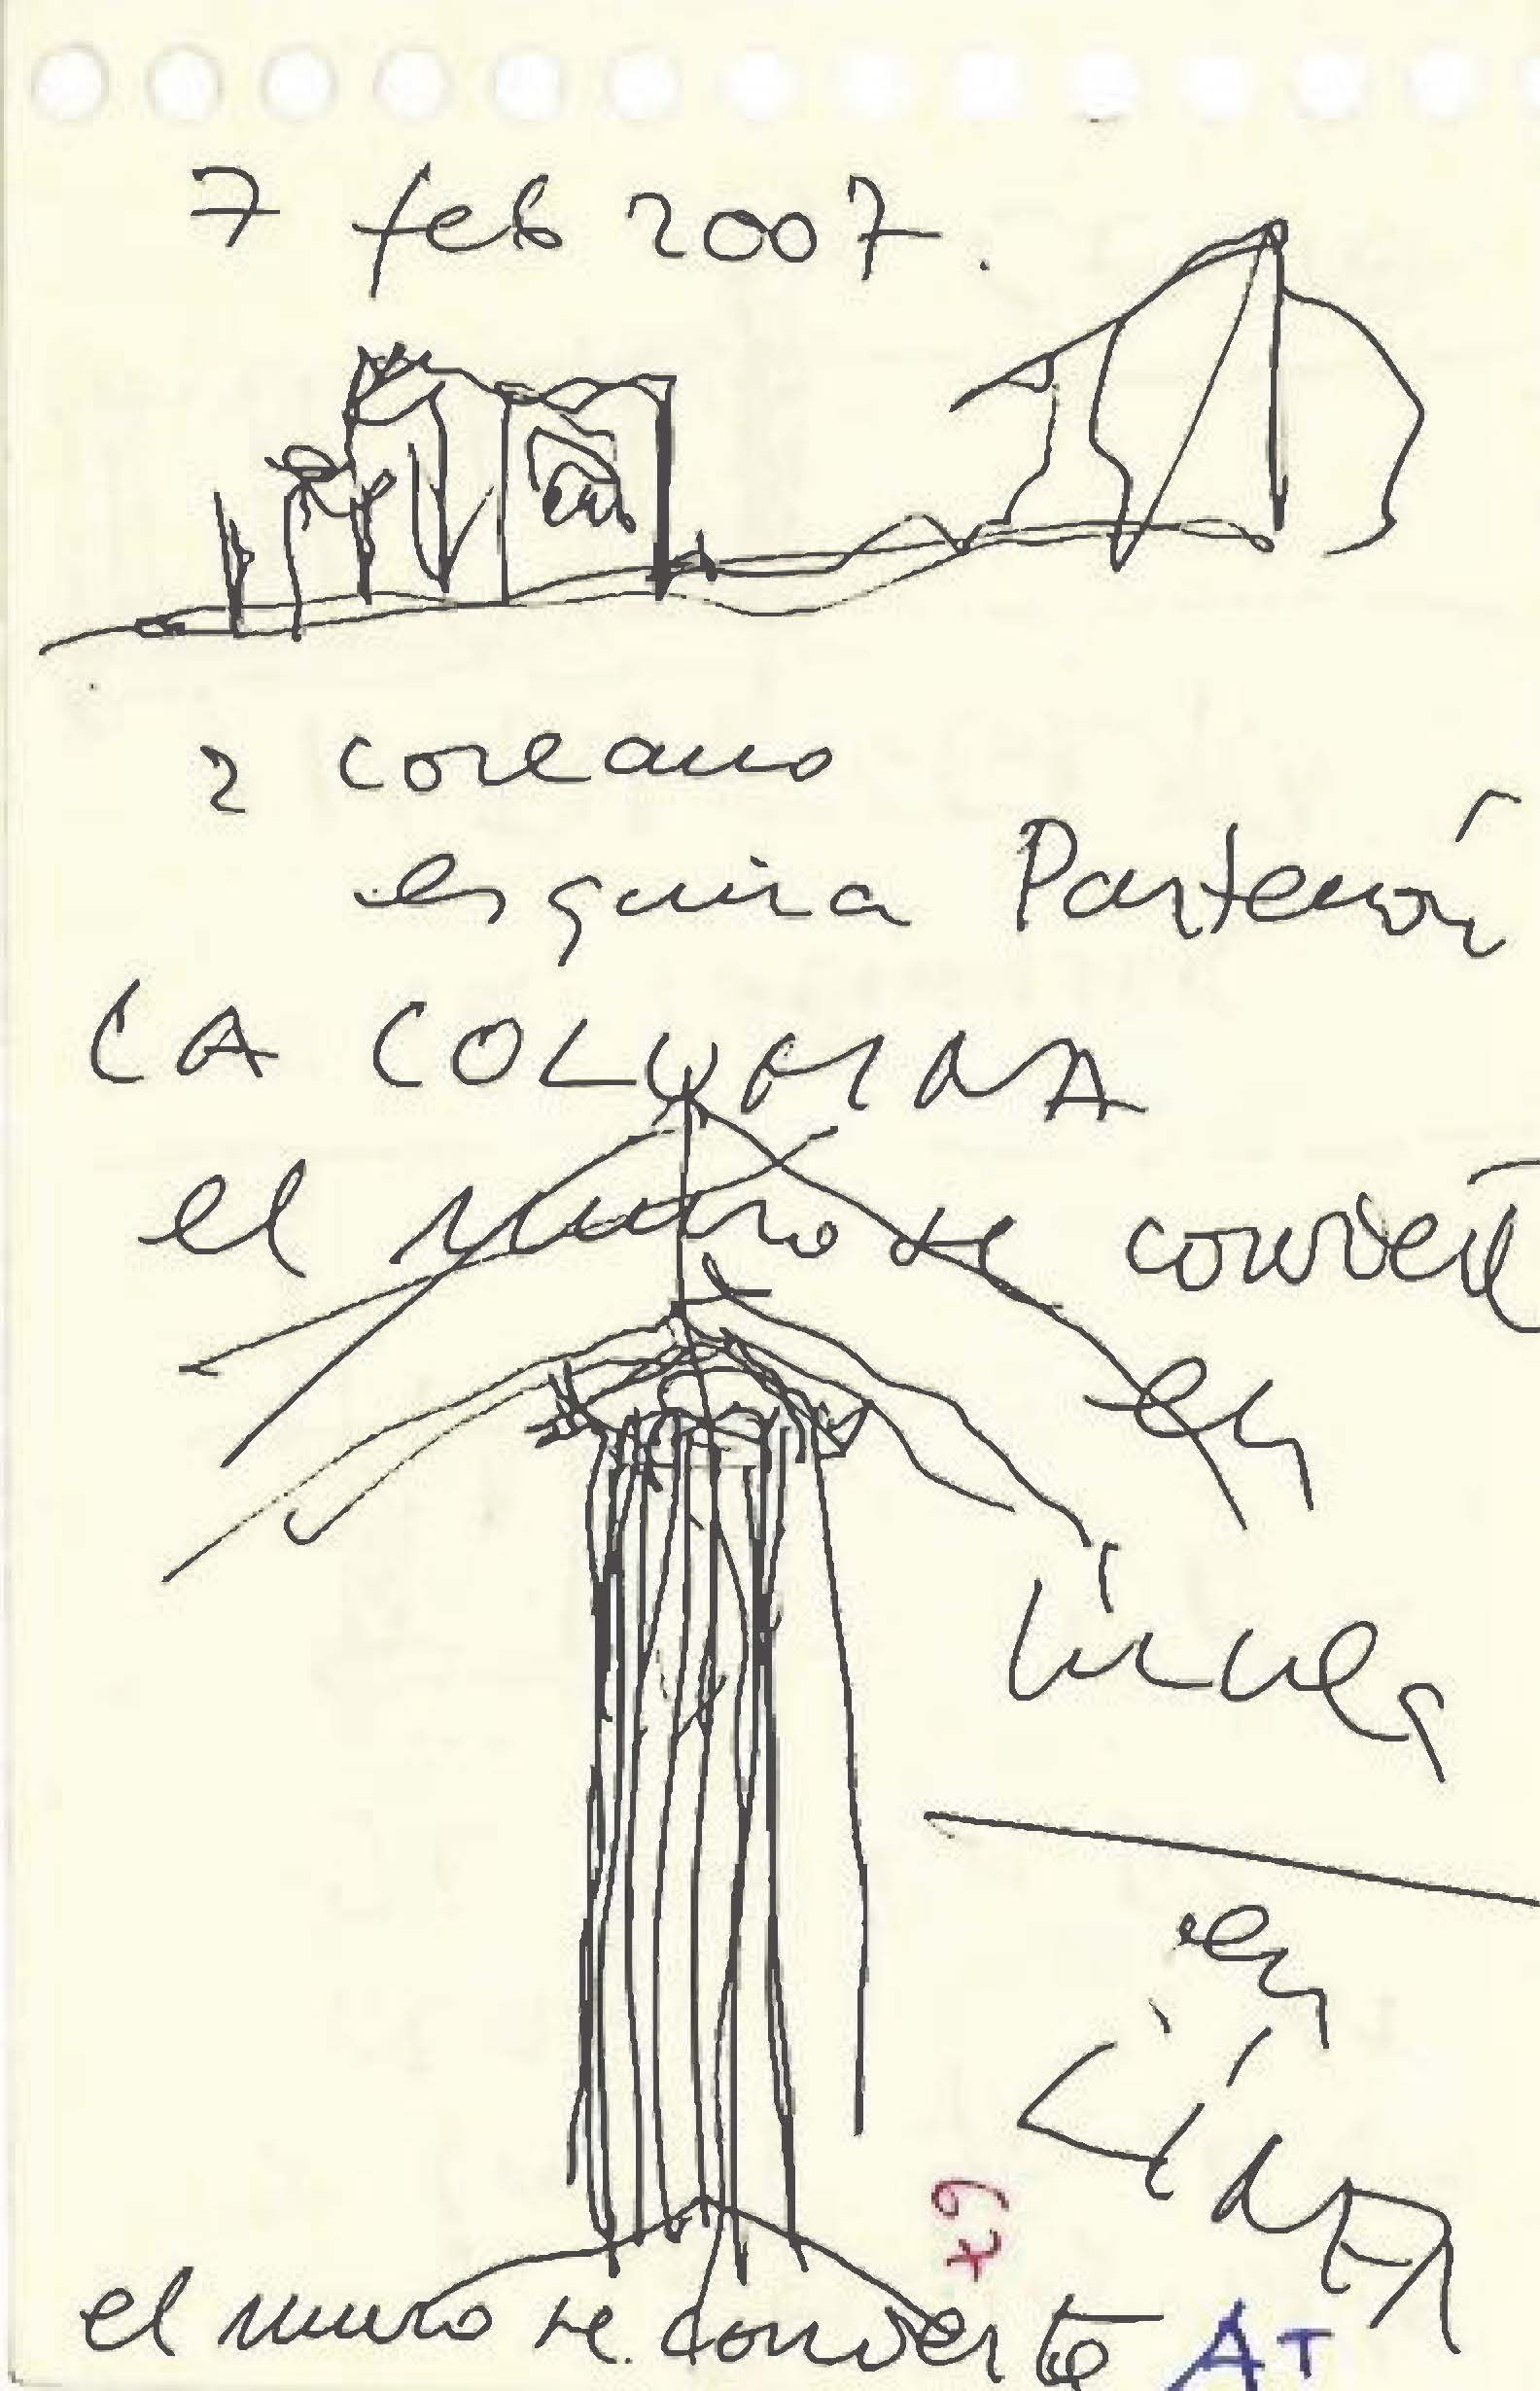 7 feb 2007.
2 coreano
esquina Partenón
LA COLUMNA
el muro se convierte
en
línea
en
LíNEA
67
el muro se convierte AT